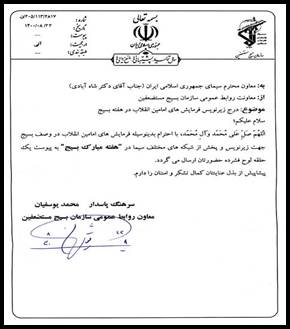 بسمه تعالی
شماره: ۲۰۵/۱۱۳/۲۸۱۷/الف
تاریخ: ۱۴۰۰/۰۸/۲۲
پیوست:
طبقه بندی:
سازمان بسیج مستضعفین
به: معاون محترم سیمای جمهوری اسلامی ایران (جناب آقای دکتر شاه آبادی)
از: معاونت روابط عمومی سازمان بسیج مستضعفین
موضوع: درج زیرنویس فرمایش های امامین انقلاب در هفته بسیج
سلام علیکم؛
اللهم صل علی محمد و آل محمد، با احترام بدینوسیله فرمایش های امامین انقلاب در وصف بسیج
جهت زیرنویس و پخش از شبکه های مختلف سیما در "هفته مبارک بسیج" به پیوست یک
حلقه لوح فشرده حضورتان ارسال می گردد.
پیشاپیش از بذل عنایتتان کمال تشکر و امتنان را دارم.
سرهنگ پاسدار محمد یوسفیان
معاون روابط عمومی سازمان بسیج مستضعفین